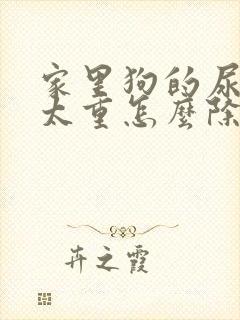 家里狗的尿
太重怎麼除
卉之霞